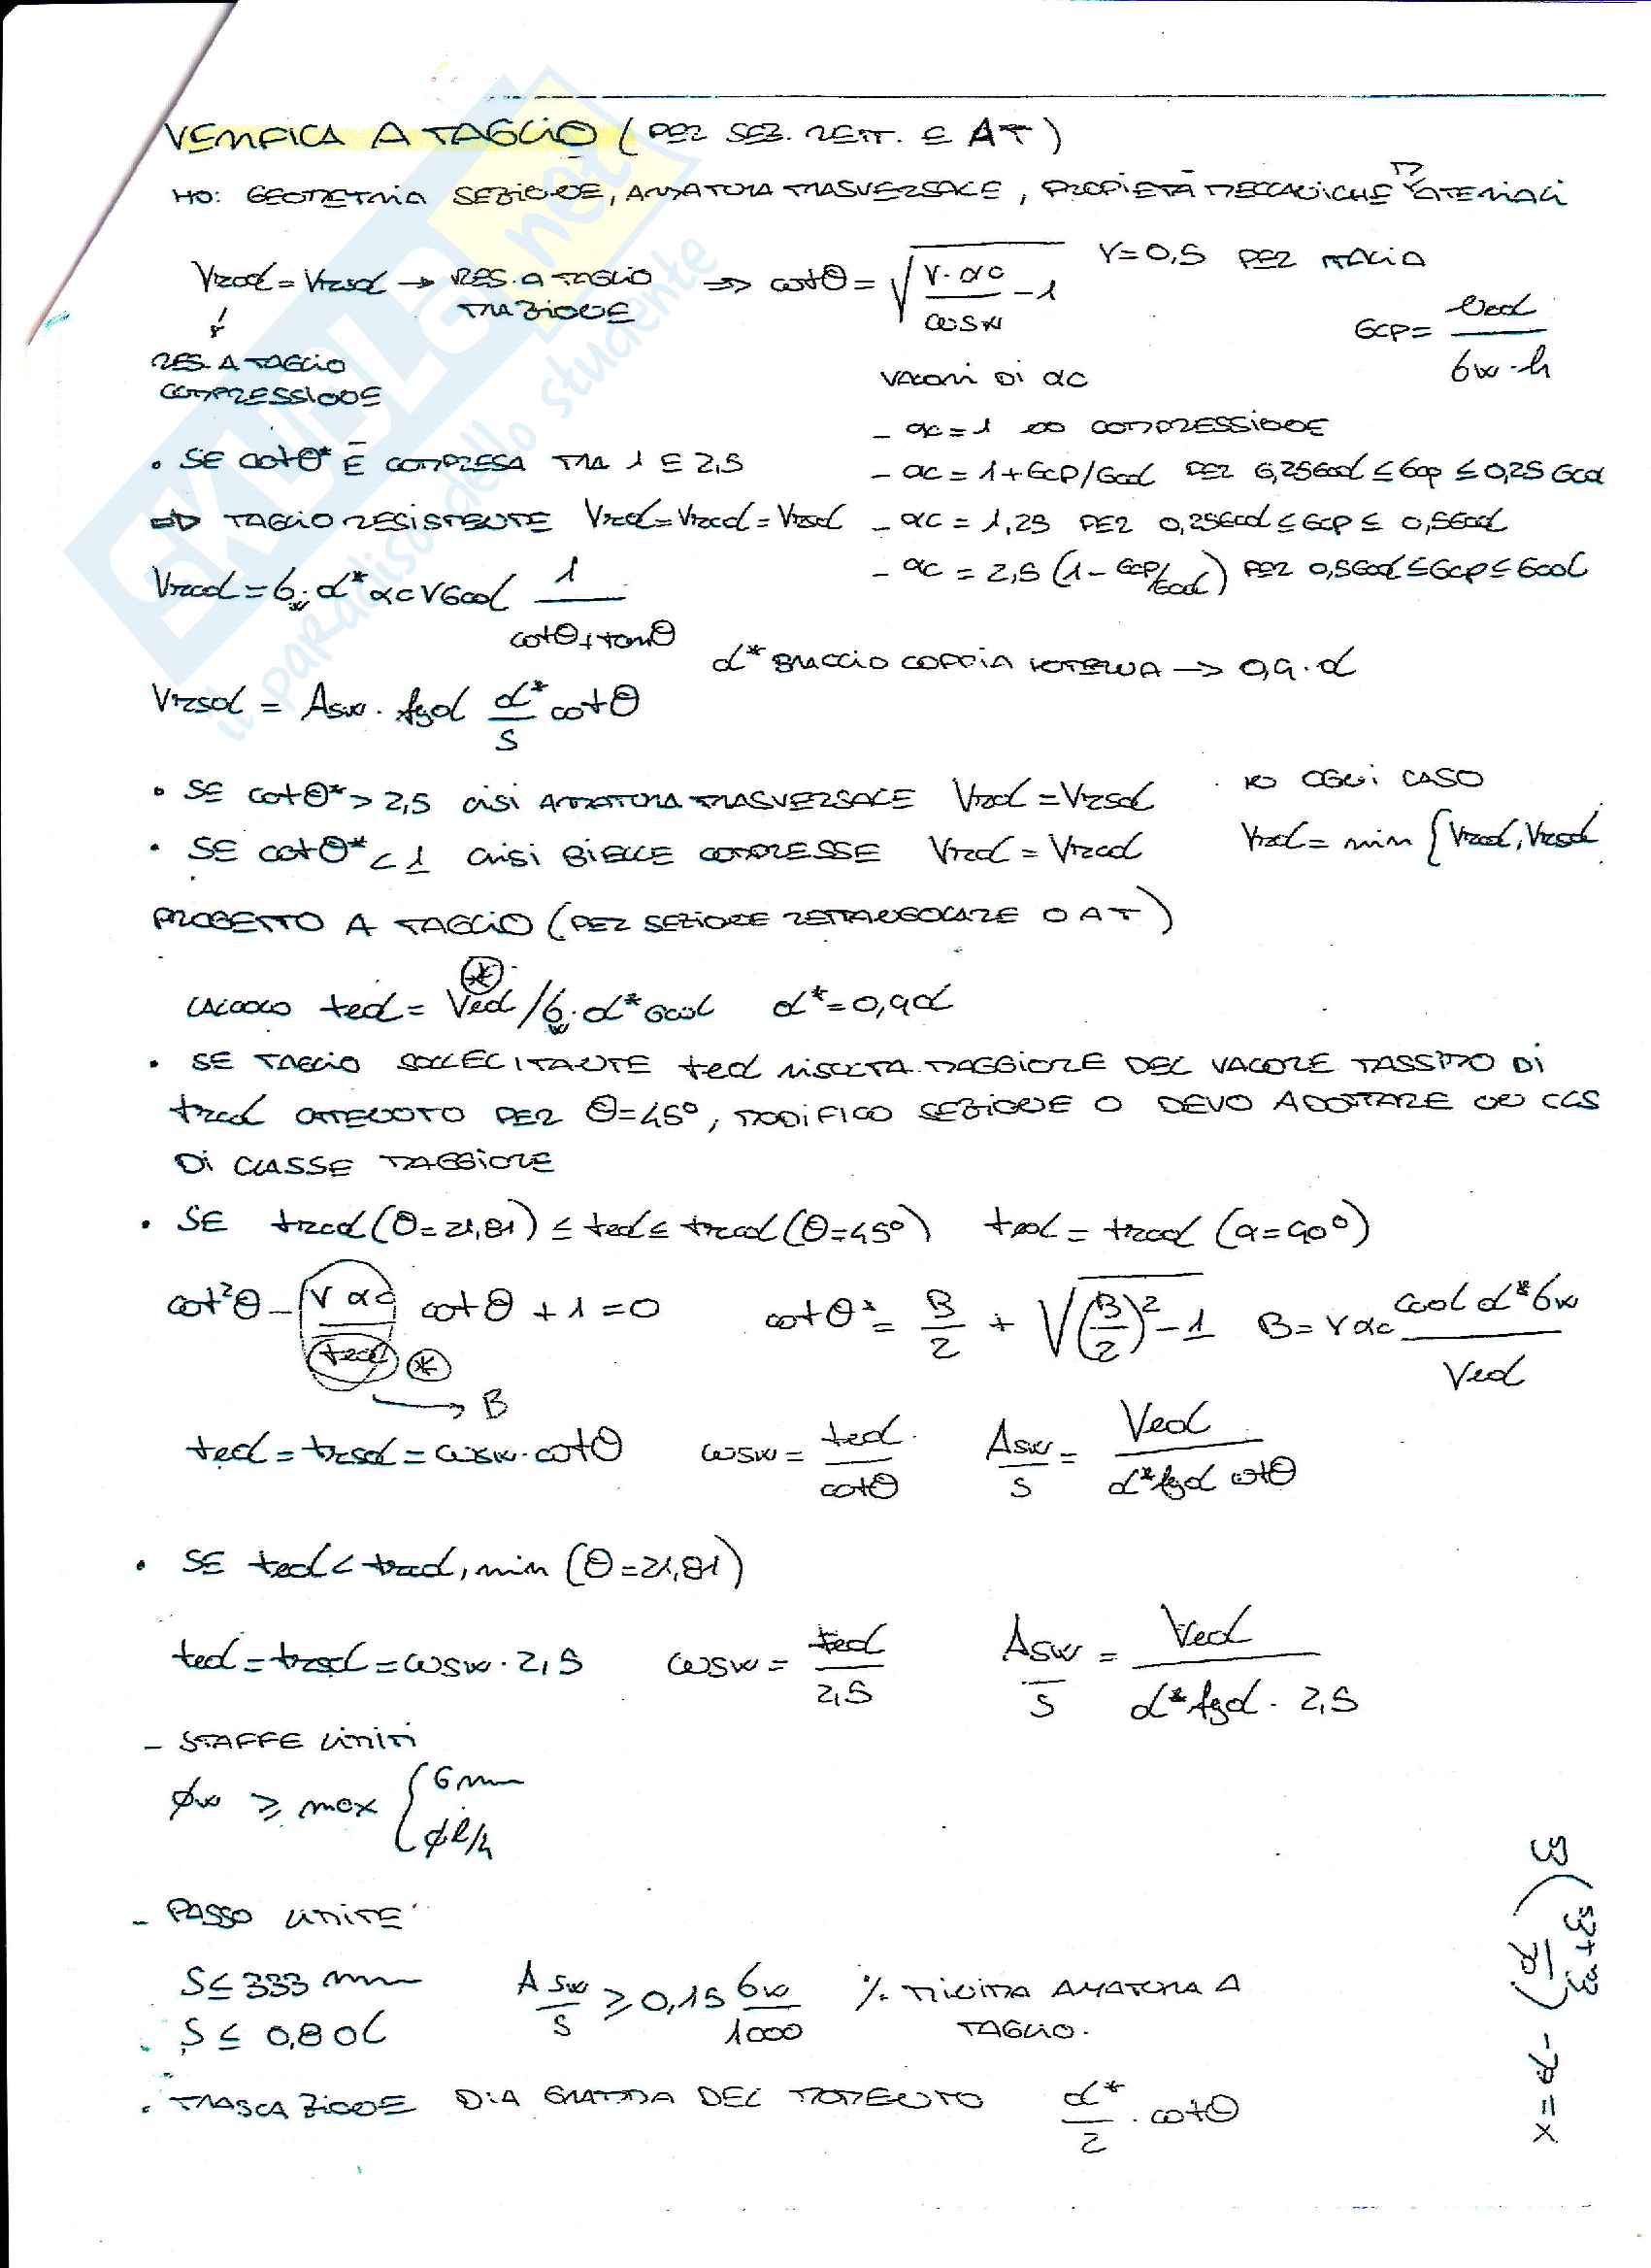 VERIFICA A TAGLIO (PER SEZ. RETT. E A T)
HO: GEOMETRIA SEZIONE, ARMATURA TRASVERSALE, PROPIETÀ MECCANICHE MATERIALI
Vrcd = Vrsd → RES. A TAGLIO TRAZIONE ⇒ cotθ = √(ν·αc/ωsw - 1) ν = 0,5 PER ITALIA
RES. A TAGLIO COMPRESSIONE
σcp = Ned/(bw·h)
VALORI DI αc
- αc = 1 NO COMPRESSIONE
• SE cotθ* È COMPRESA TRA 1 E 2,5
- αc = 1 + σcp/σcd PER 0,25σcd ≤ σcp ≤ 0,25σcd
⇒ TAGLIO RESISTENTE Vrd = Vrcd = Vrsd
- αc = 1,25 PER 0,25σcd ≤ σcp ≤ 0,5σcd
- αc = 2,5 (1 - σcp/σcd) PER 0,5σcd ≤ σcp ≤ σcd
Vrcd = bw·d* αc ν σcd 1/(cotθ + tanθ)
d* BRACCIO COPPIA INTERNA → 0,9·d
Vrsd = Asw·fyd d*/s cotθ
• SE cotθ* > 2,5 CRISI ARMATURA TRASVERSALE Vrd = Vrsd
IN OGNI CASO
• SE cotθ* < 1 CRISI BIELLE COMPRESSE Vrd = Vrcd
Vrd = min {Vrcd, Vrsd
PROGETTO A TAGLIO (PER SEZIONE RETTANGOLARE O A T)
CALCOLO ted = Ved * / bw·d* σcd d* = 0,9d
• SE TAGLIO SOLLECITANTE ted RISULTA MAGGIORE DEL VALORE MASSIMO DI
trcd OTTENUTO PER θ = 45°, MODIFICO SEZIONE O DEVO ADOTTARE UN CLS
DI CLASSE MAGGIORE
• SE trcd (θ = 21,81) ≤ ted ≤ trcd (θ = 45°) ted = trcd (α = 90°)
cot²θ - ν αc/ted * cotθ + 1 = 0 cotθ* = B/2 + √((B/2)² - 1) B = ν αc σcd d* bw/Ved
→ B
ted = trsd = ωsw·cotθ ωsw = ted/cotθ Asw/s = Ved/(d* fyd cotθ)
• SE ted < trcd, min (θ = 21,81)
ted = trsd = ωsw·2,5 ωsw = ted/2,5 Asw/s = Ved/(d* fyd·2,5)
- STAFFE LIMITI
φw ≥ max {6 mm
φl/4
- PASSO LIMITE
S ≤ 333 mm
Asw/s ≥ 0,15 bw/1000 % MINIMA ARMATURA A TAGLIO.
S ≤ 0,8 d
• TRASLAZIONE DIAGRAMMA DEL MOMENTO d*/2 · cotθ
x = d - (d/(εa + εs)) εs